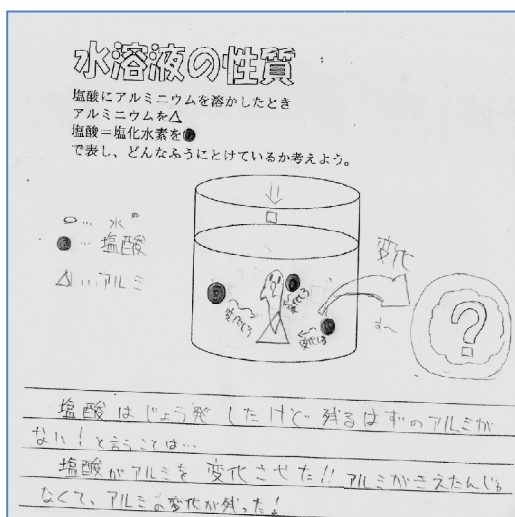 水溶液の性質
塩酸にアルミニウムを溶かしたとき
アルミニウムを△
塩酸＝塩化水素を●
で表し、どんなふうにとけているか考えよう。
○… 水
●… 塩酸
△…アルミ
変化
変化しろ
変化しろ
?
塩酸はじょう発したけど残るはずのアルミが
ない！と言うことは…
塩酸がアルミを変化させた!!アルミがきえたんじゃ
なくて、アルミの変化が残った！